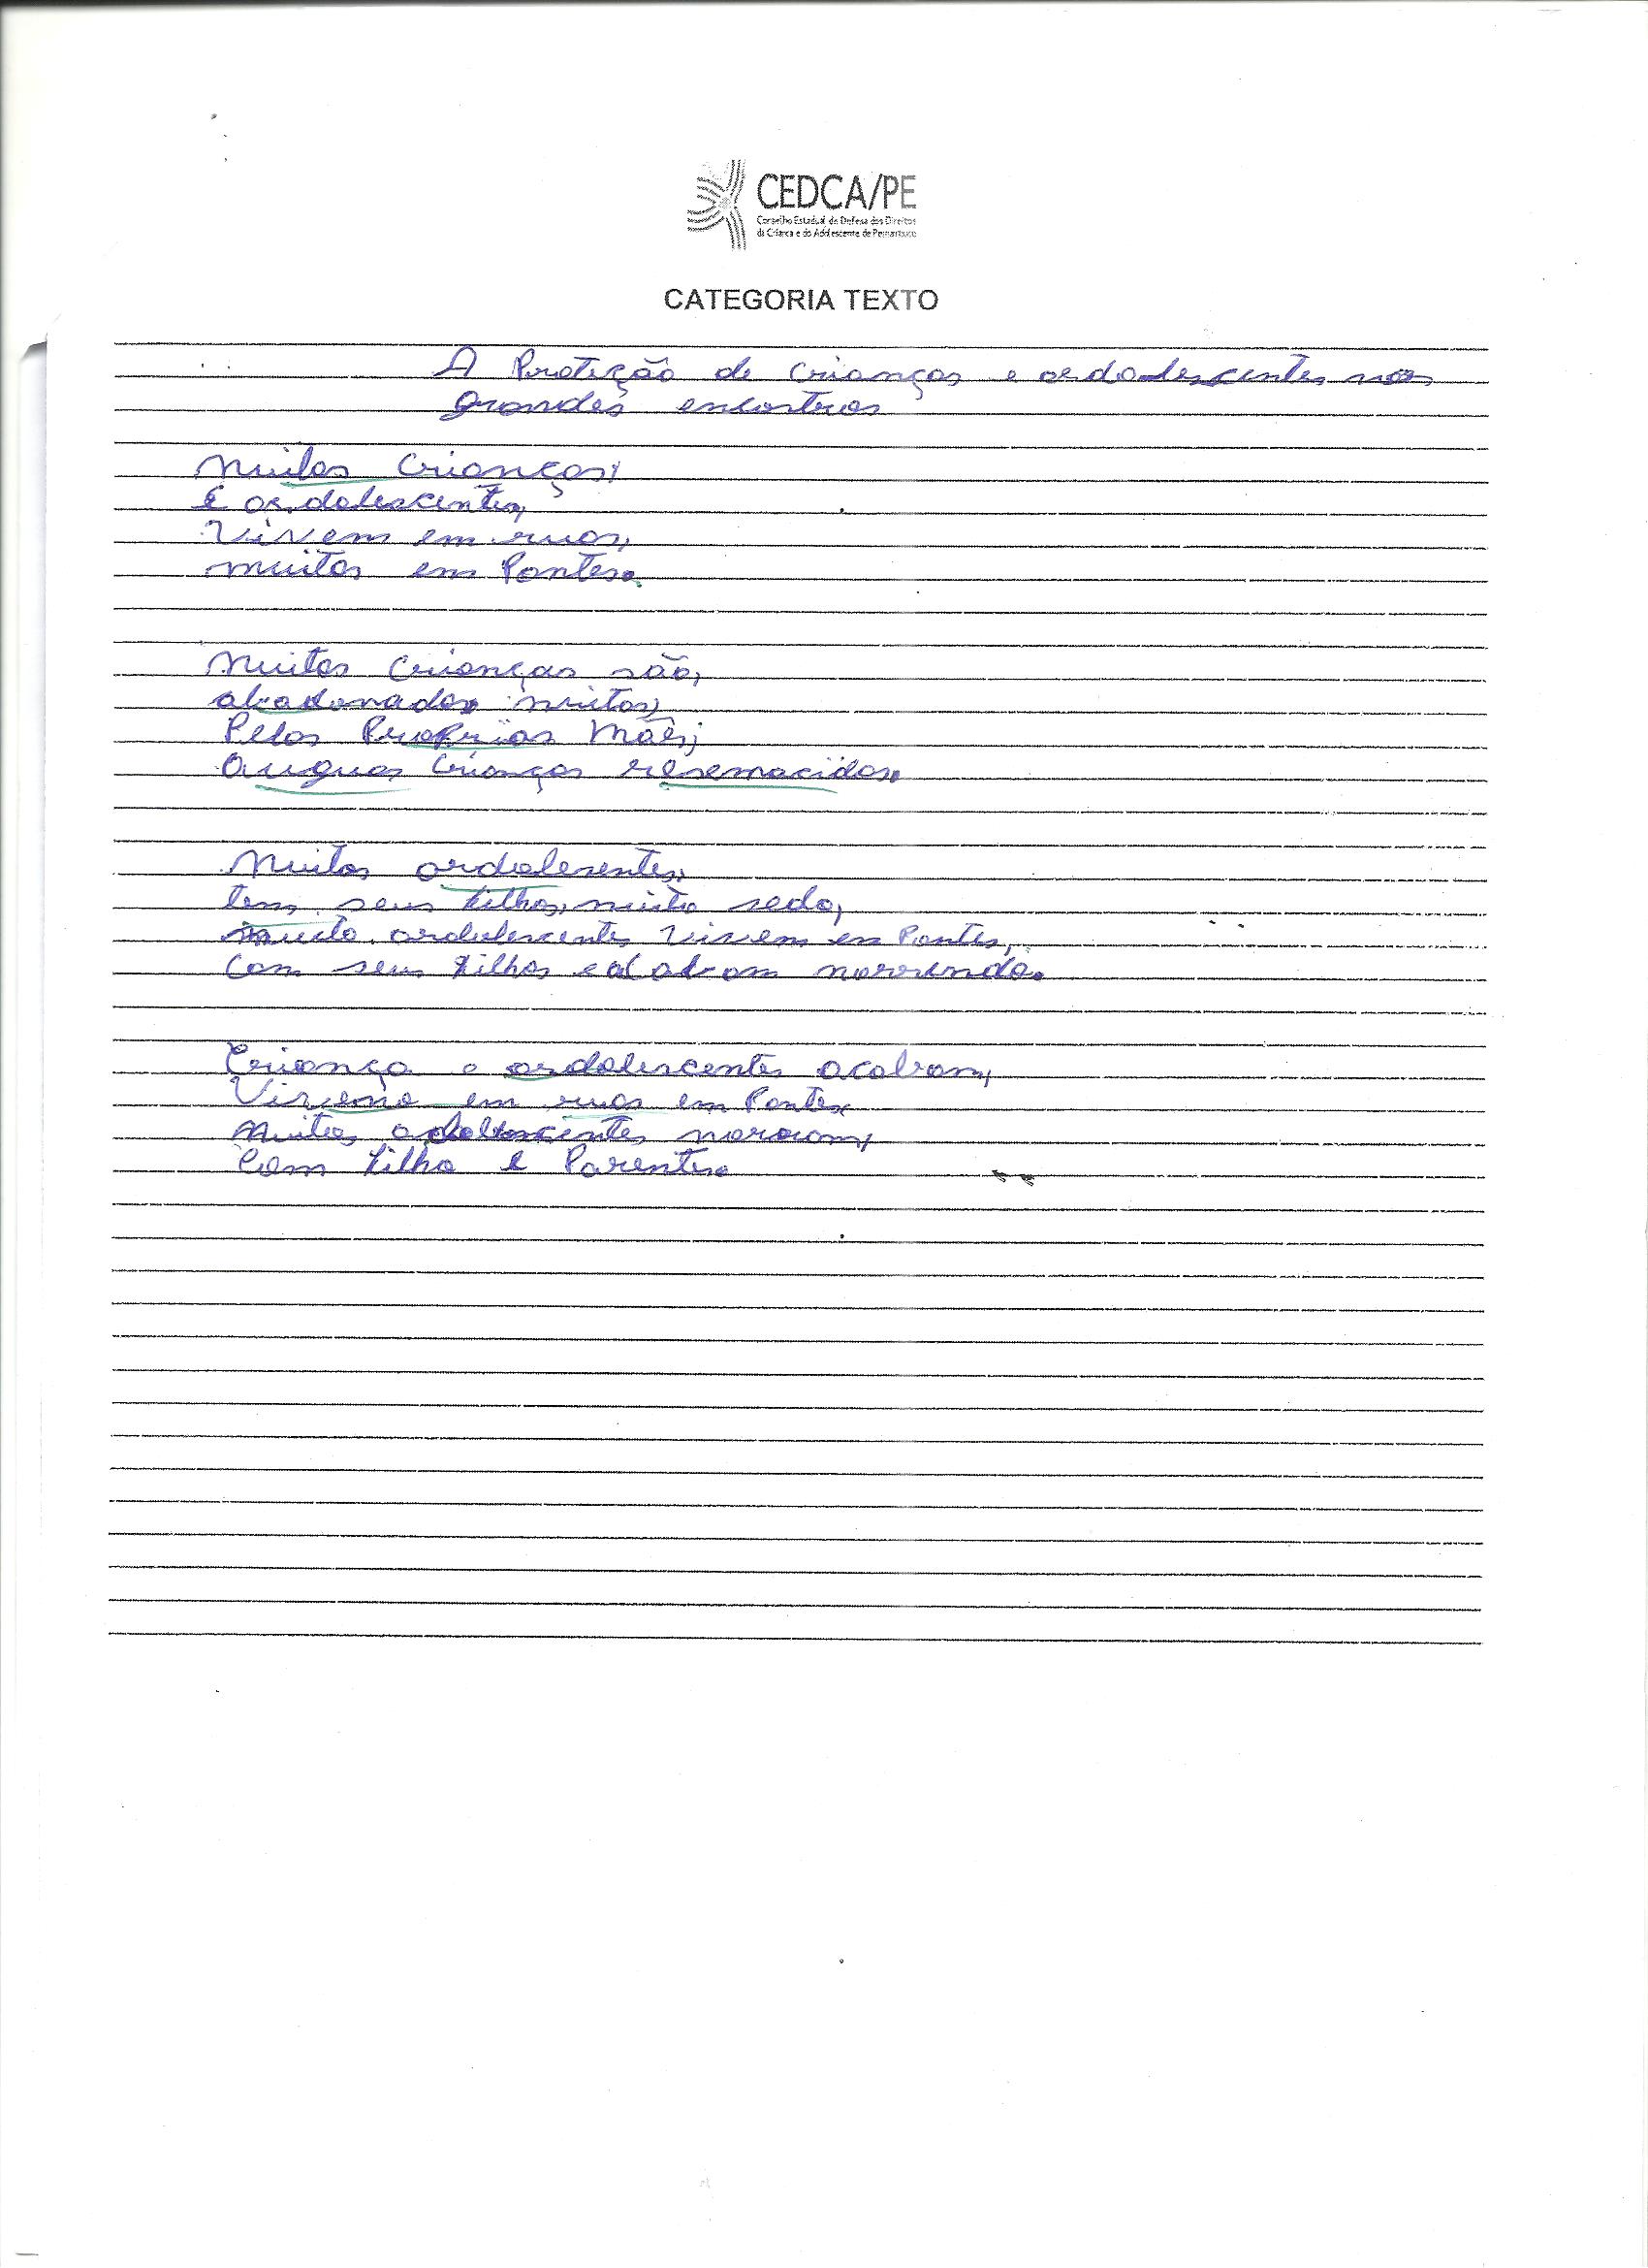 CEDCA/PE
Conselho Estadual de Defesa dos Direitos
da Criança e do Adolescente de Pernambuco
CATEGORIA TEXTO
A Proteção de Crianças e ardolescentes nos
grandes encontros
Muitas Crianças,
E ardolescentes,
Vivem em ruas,
muitas em Pontes.
Muitas crianças são,
abadonadas muitas,
Pelas Proprias Mães,
Auguas crianças resemacidas.
Muitas ardolesentes,
tem seus filhos, muito sedo,
muito ardolescentes vivem em Pontes,
Com seus filhos e acabam morrendo.
Criança e ardolescentes acabam,
Viveno em ruas em Pontes
Muitas adolescentes moram,
Com filho e Parentes.